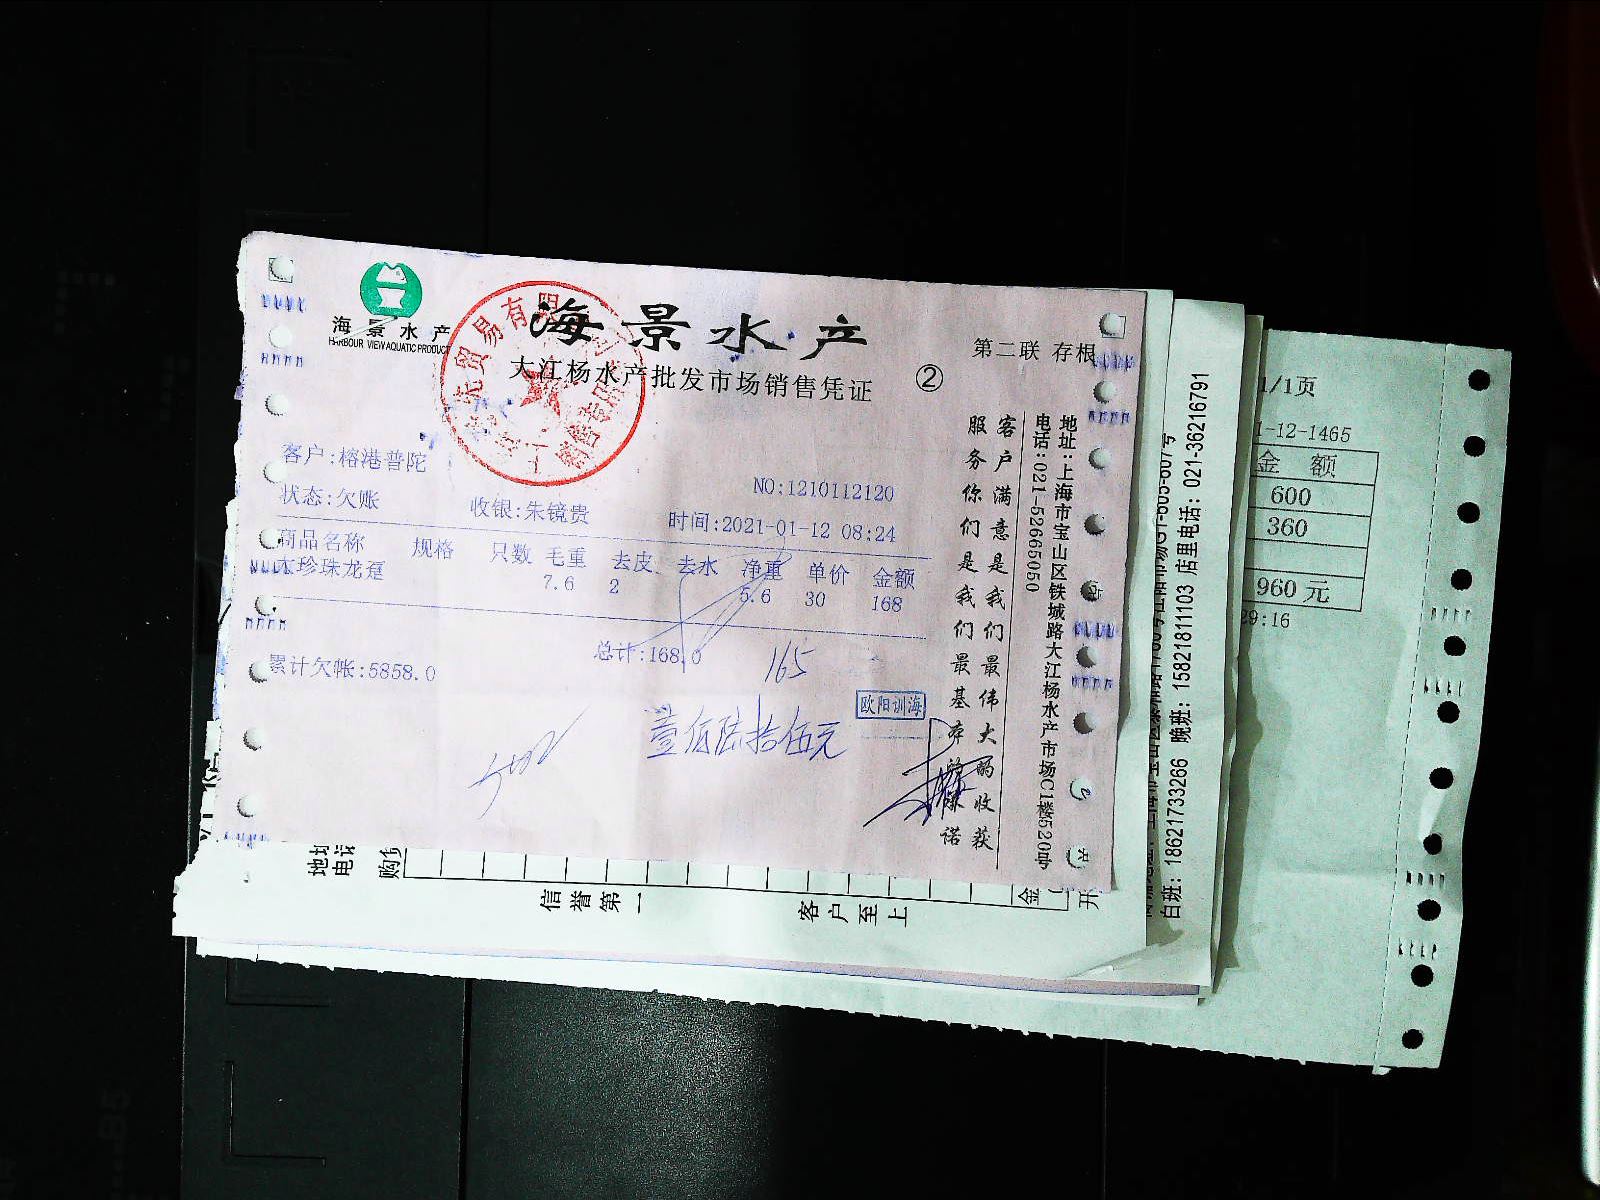 海景水产
HARBOUR VIEW AQUATIC PRODUCT
海景水产
大江杨水产批发市场销售凭证
②
第二联 存根
贸易有限
客户:榕港普陀
NO:1210112120
状态:欠账
收银:朱镜贵
时间:2021-01-12 08:24
商品名称 规格 只数 毛重 去皮 去水 净重 单价 金额
大珍珠龙趸 7.6 2 5.6 30 168
总计:168.0
165
累计欠帐:5858.0
壹佰陆拾伍元
欧阳训海
客户满意是我们最伟大的收获
服务你们是我们最基本的承诺
地址:上海市宝山区铁城路大江杨水产市场C1楼520号
电话:021-52665050
地址
电话
购货
信誉第一
客户至上
金
开
白班: 18621733266 晚班: 15821811103 店里电话: 021-36216791
1/1页
1-12-1465
金 额
600
360
960 元
29:16